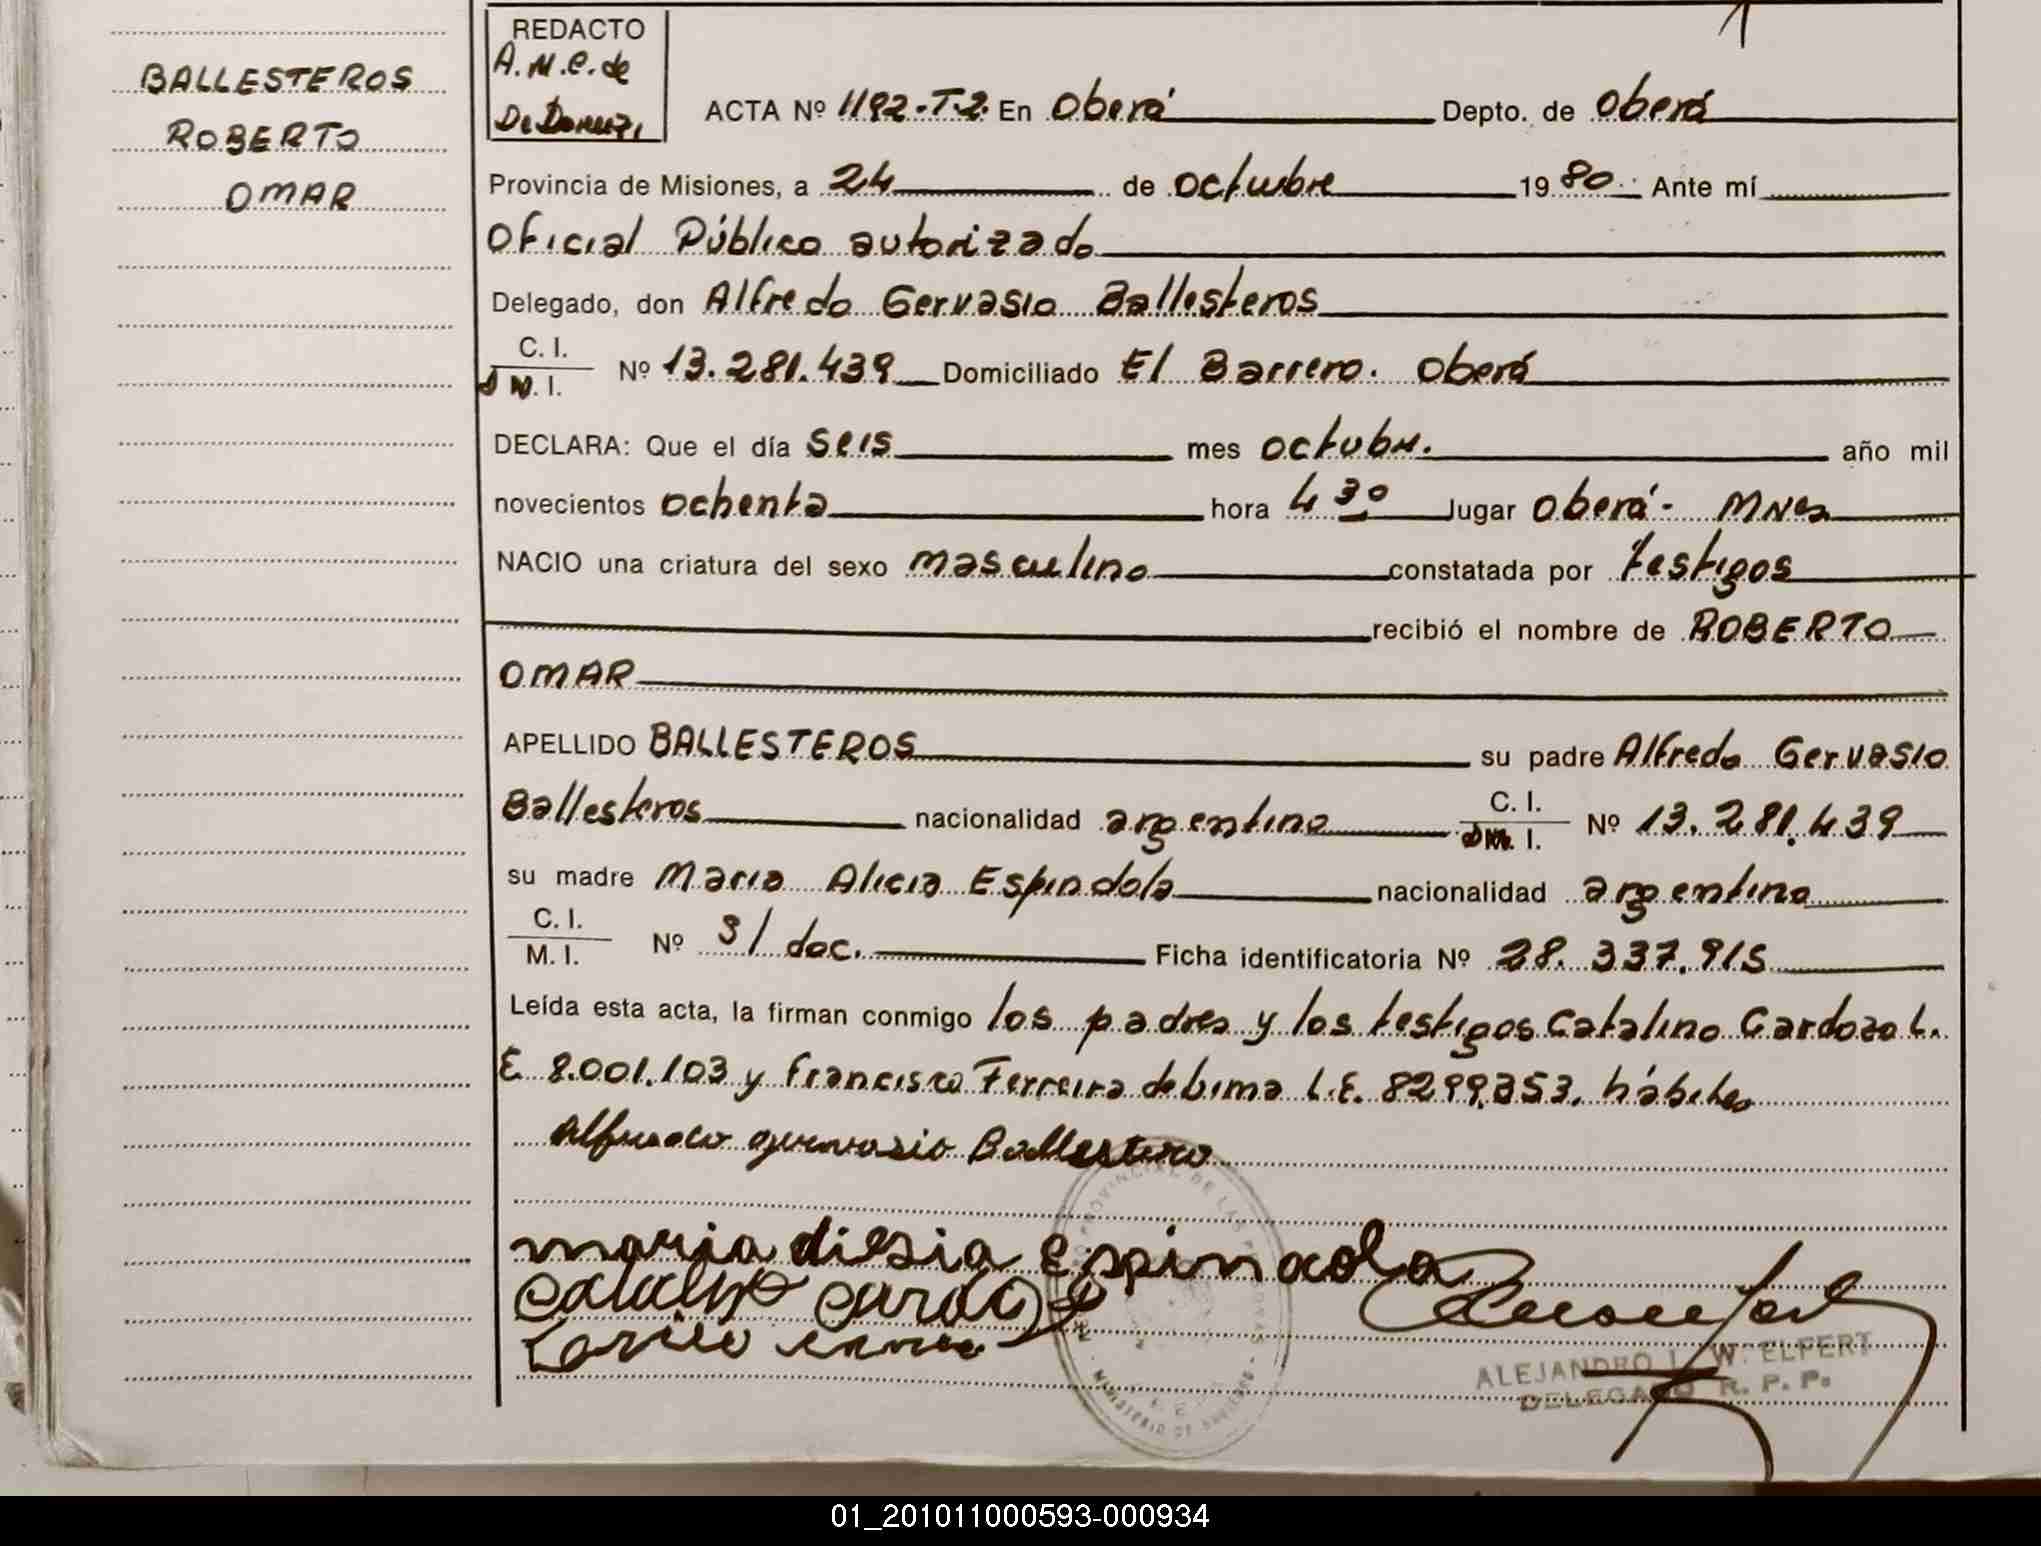 BALLESTEROS
ROBERTO
OMAR
REDACTO
A.M.C. de
ACTA Nº 1192-T-2. En Oberá Depto. de Oberá
Provincia de Misiones, a 24 de octubre 1980. Ante mí
Oficial Público autorizado
Delegado, don Alfredo Gervasio Ballesteros
C. I.
D N. I. Nº 13.281.439 Domiciliado El Barrero. Oberá
DECLARA: Que el día seis mes octubre. año mil
novecientos ochenta hora 4 30 lugar Oberá- Mnes
NACIO una criatura del sexo masculino constatada por testigos
recibió el nombre de ROBERTO
OMAR
APELLIDO BALLESTEROS su padre Alfredo Gervasio
Ballesteros nacionalidad argentino C. I. DN. I. Nº 13.281.439
su madre Maria Alicia Espindola nacionalidad argentina
C. I.
M. I. Nº S/ doc. Ficha identificatoria Nº 28.337.915
Leída esta acta, la firman conmigo los padres y los testigos Catalino Cardozo L.
E 8.001.103 y Francisco Ferreira de Lima L.E. 8299.353. hábiles
Alfredo gervasio Ballestero
maria alesia Espindola
ALEJANDRO L. W. ELFERT
DELEGADO R. P. P.
01_201011000593-000934